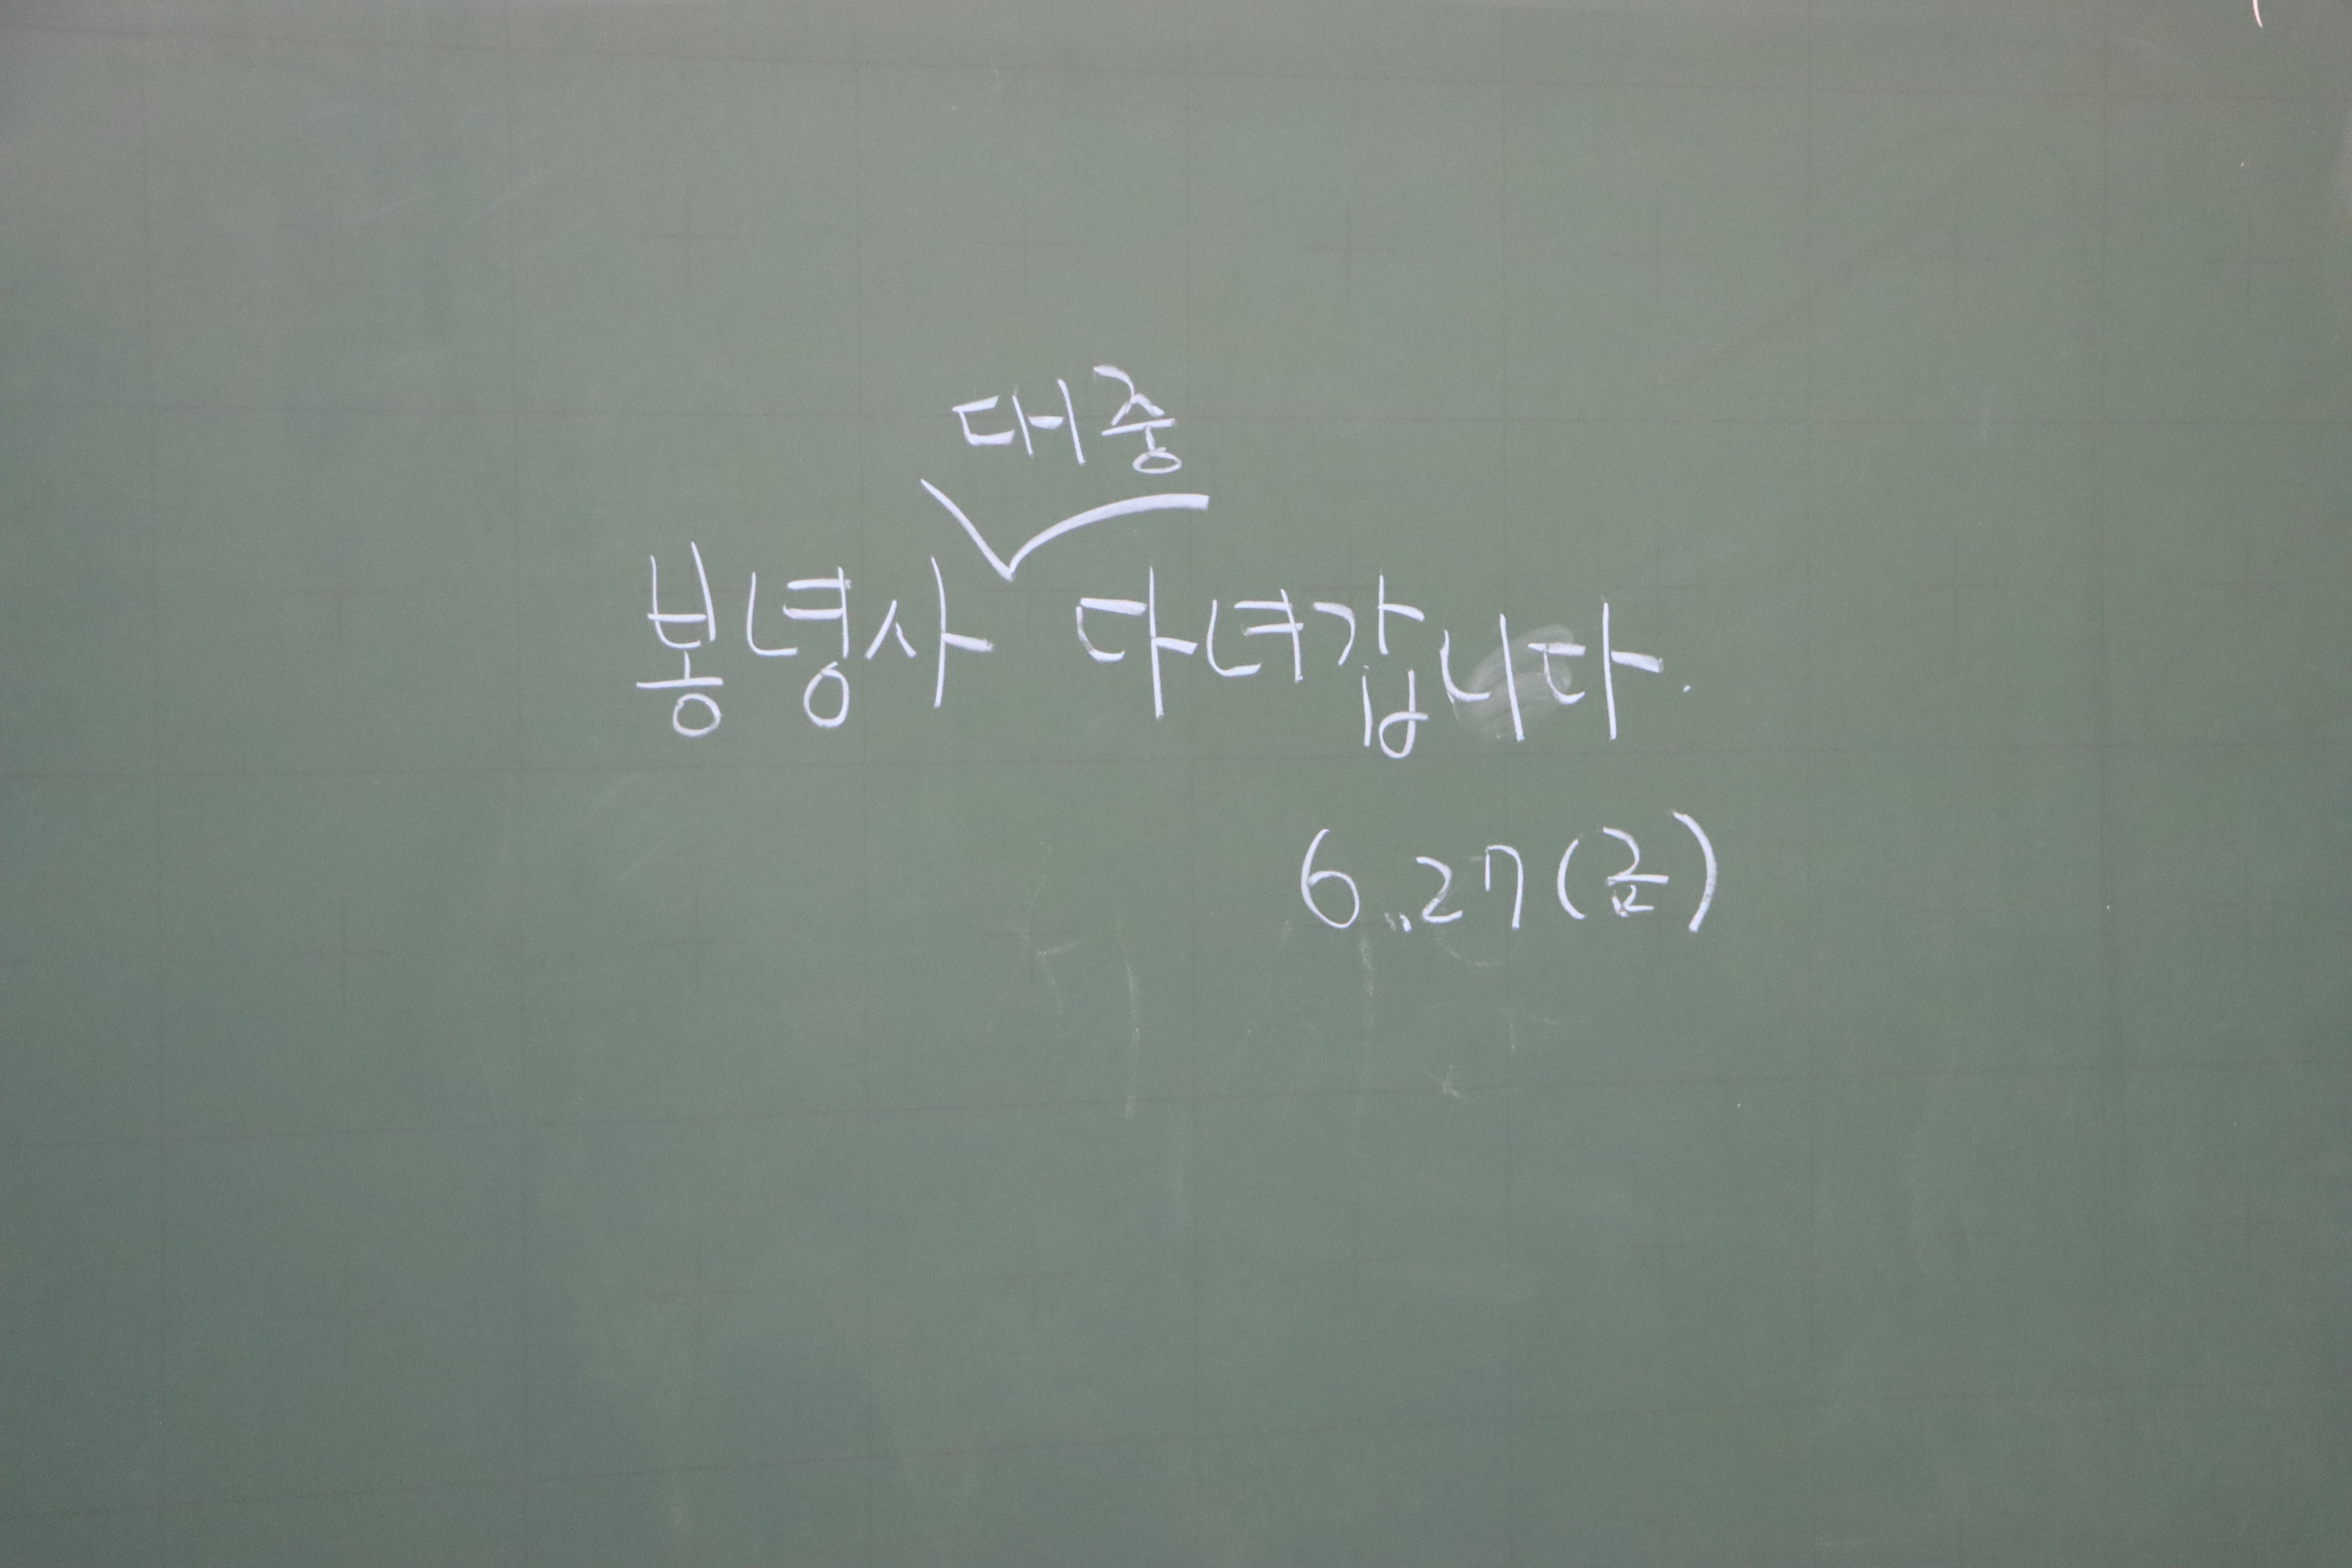 대중
봉녕사 다녀갑니다.
6.27(금)